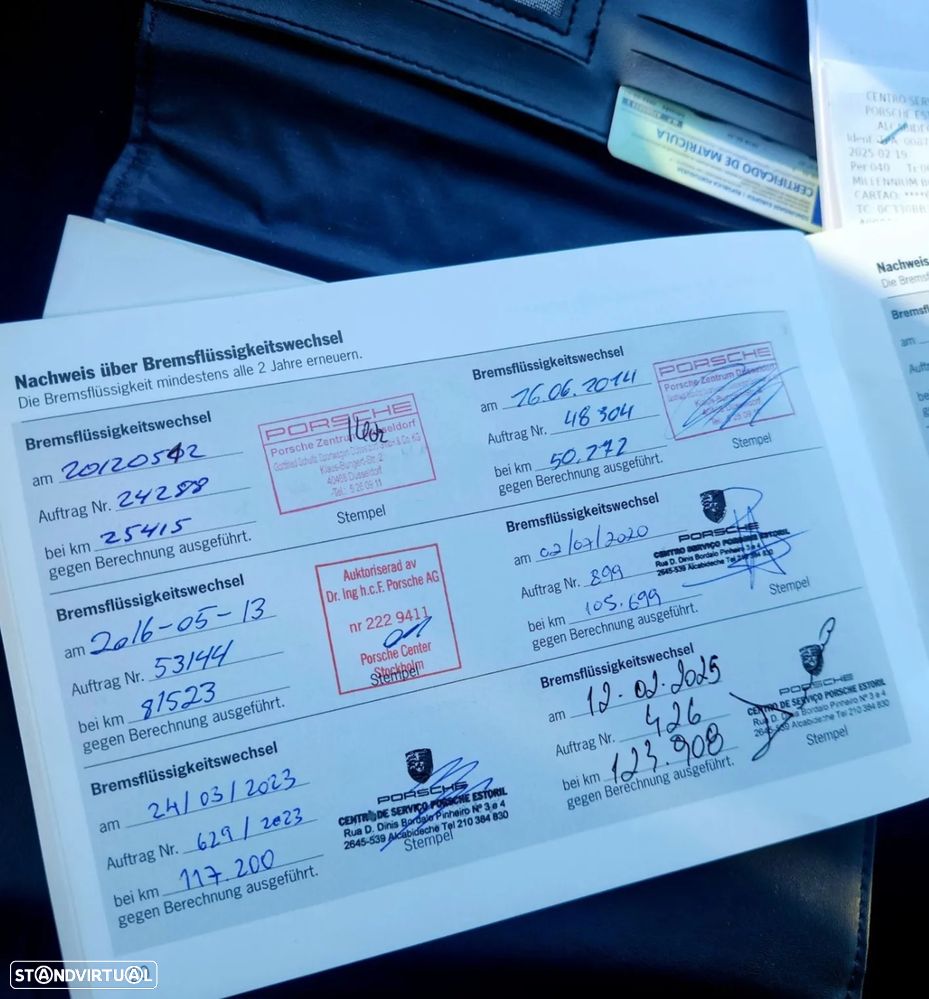 CERTIFICADO DE MATRÍCULA
CENTRO SER
PORSCHE EST
ALCABIDE
2025-02-19
Per:040
MILLENNIUM B
CARTAO: ****
Nachweis über Bremsflüssigkeitswechsel
Die Bremsflüssigkeit mindestens alle 2 Jahre erneuern.
Bremsflüssigkeitswechsel
am 20120542
Auftrag Nr. 24288
bei km 25415
gegen Berechnung ausgeführt.
PORSCHE
Porsche Zentrum Düsseldorf
Klaus-Bungert-Str. 2
40468 Düsseldorf
Tel.: 5 26 09 11
Stempel
Bremsflüssigkeitswechsel
am 26.06.2014
Auftrag Nr. 48304
bei km 50.272
gegen Berechnung ausgeführt.
PORSCHE
Porsche Zentrum Düsseldorf
Stempel
Bremsflüssigkeitswechsel
am 2016-05-13
Auftrag Nr. 53144
bei km 81523
gegen Berechnung ausgeführt.
Auktoriserad av
Dr. Ing h.c.F. Porsche AG
nr 222 9411
Porsche Center
Stockholm
Stempel
Bremsflüssigkeitswechsel
am 02/07/2020
Auftrag Nr. 899
bei km 105.699
gegen Berechnung ausgeführt.
PORSCHE
CENTRO SERVIÇO PORSCHE ESTORIL
Rua D. Dinis Bordalo Pinheiro Nº 3 e 4
2645-539 Alcabideche Tel 210 384 830
Stempel
Bremsflüssigkeitswechsel
am 24/03/2023
Auftrag Nr. 629/2023
bei km 117.200
gegen Berechnung ausgeführt.
PORSCHE
CENTRO DE SERVIÇO PORSCHE ESTORIL
Rua D. Dinis Bordalo Pinheiro Nº 3 e 4
2645-539 Alcabideche Tel 210 384 830
Stempel
Bremsflüssigkeitswechsel
am 12.02.2025
Auftrag Nr. 426
bei km 123.908
gegen Berechnung ausgeführt.
PORSCHE
CENTRO DE SERVIÇO PORSCHE ESTORIL
Rua D. Dinis Bordalo Pinheiro Nº 3 e 4
2645-539 Alcabideche Tel 210 384 830
Stempel
Nachweis
Die Bremsf
Bremsfl
am
Auft
be
STANDVIRTUAL